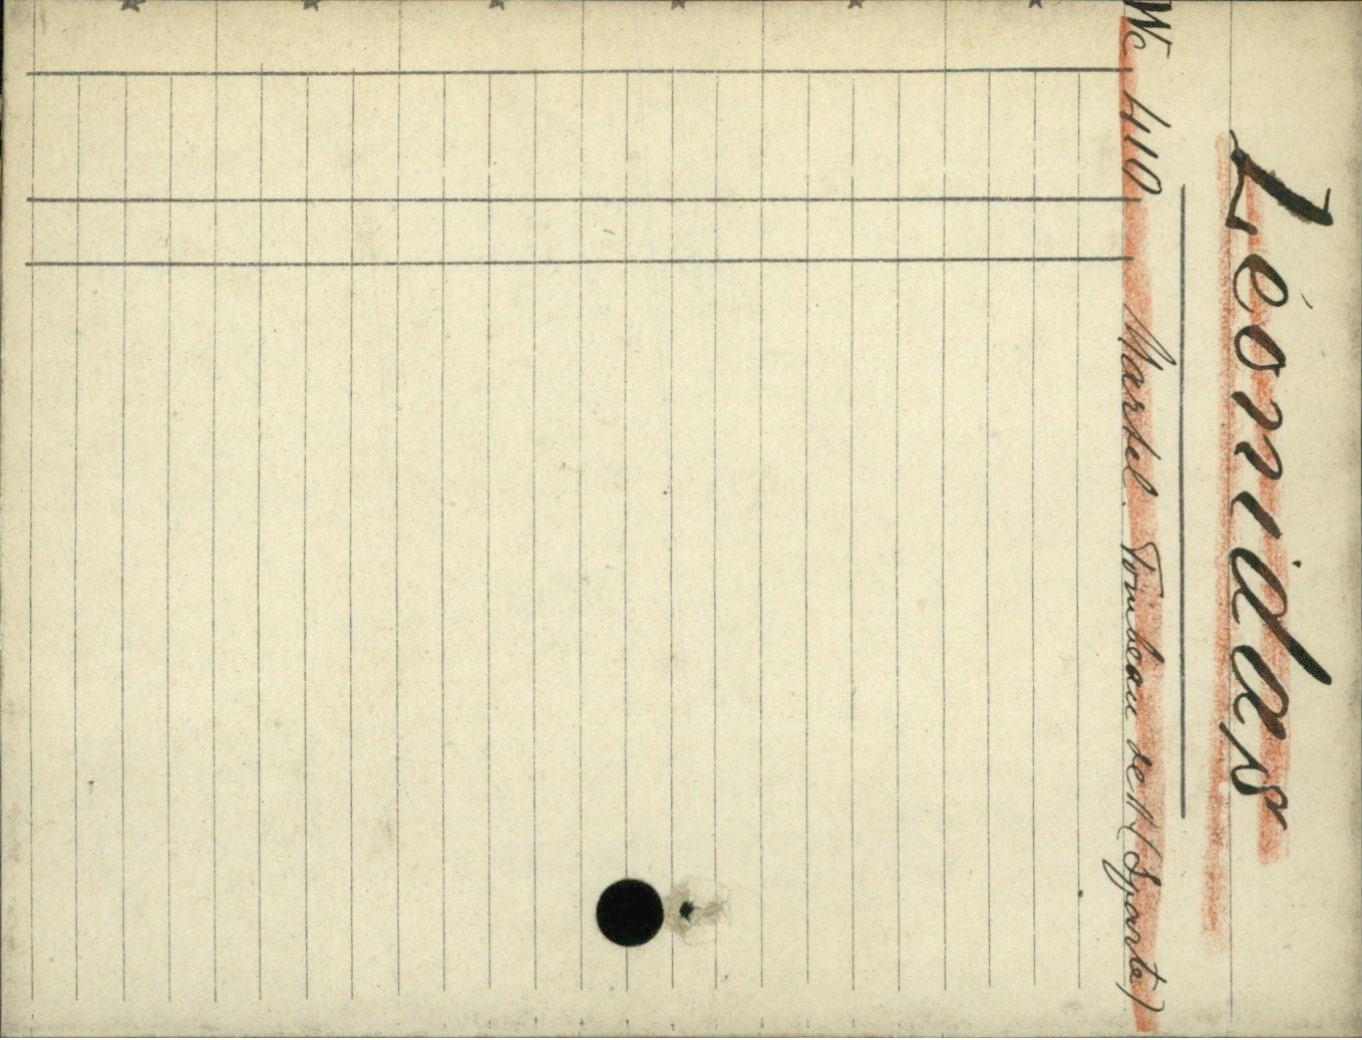 Léonidas
Wc 410 Martel. Tombeau de " (Sparte)